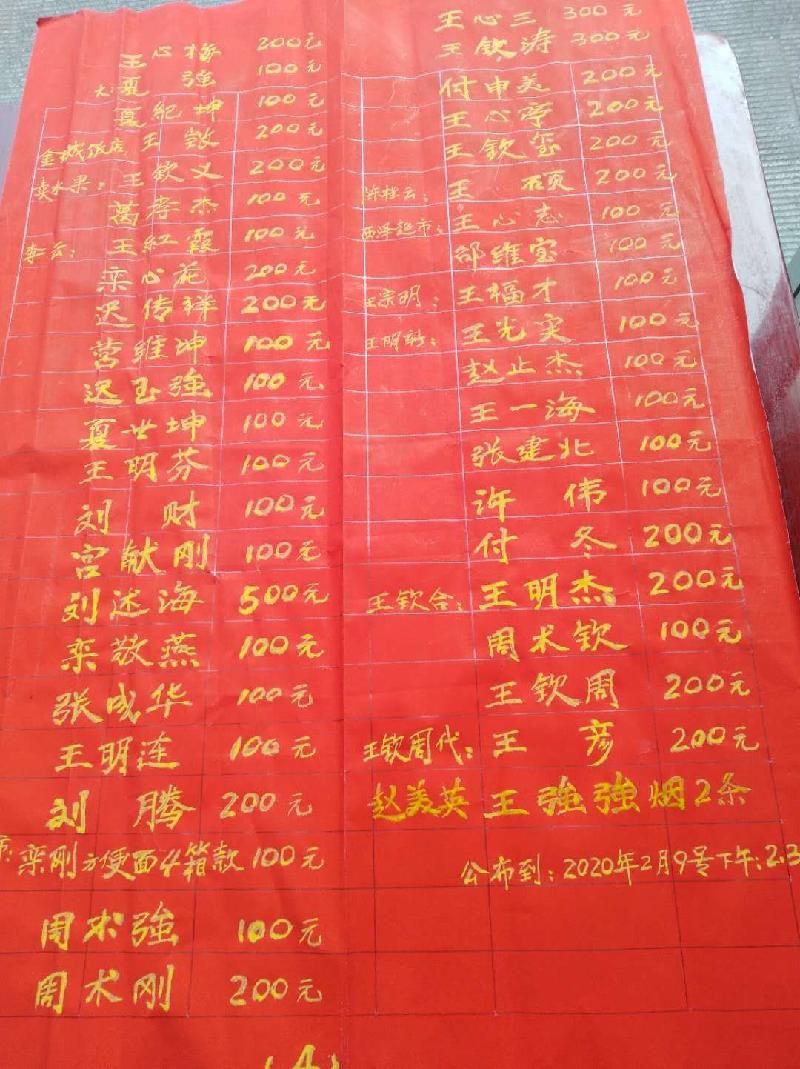 王心梅 200元
夏強 100元
夏紀坤 100元
金城饭店 王毅 200元
卖水果：王钦义 200元
蒿孝杰 100元
王红霞 100元
栾心花 200元
迟传祥 200元
营维坤 100元
迟玉強 100元
夏世坤 100元
王明芬 100元
刘财 100元
宫献刚 100元
刘述海 500元
栾敬燕 100元
张成华 100元
王明连 100元
刘腾 200元
栾刚方便面4箱款 100元
周术強 100元
周术刚 200元
(4)
王心三 300元
王钦涛 300元
付申美 200元
王心亭 200元
王钦玺 200元
王硕 200元
王心志 100元
邰维宝 100元
王宗明：王福才 100元
王光实 100元
赵止杰 100元
王一海 100元
张建北 100元
许伟 100元
付冬 200元
王钦合：王明杰 200元
周术钦 100元
王钦周 200元
王钦周代：王彦 200元
赵美英 王強強烟2条
公布到：2020年2月9号下午：2.3